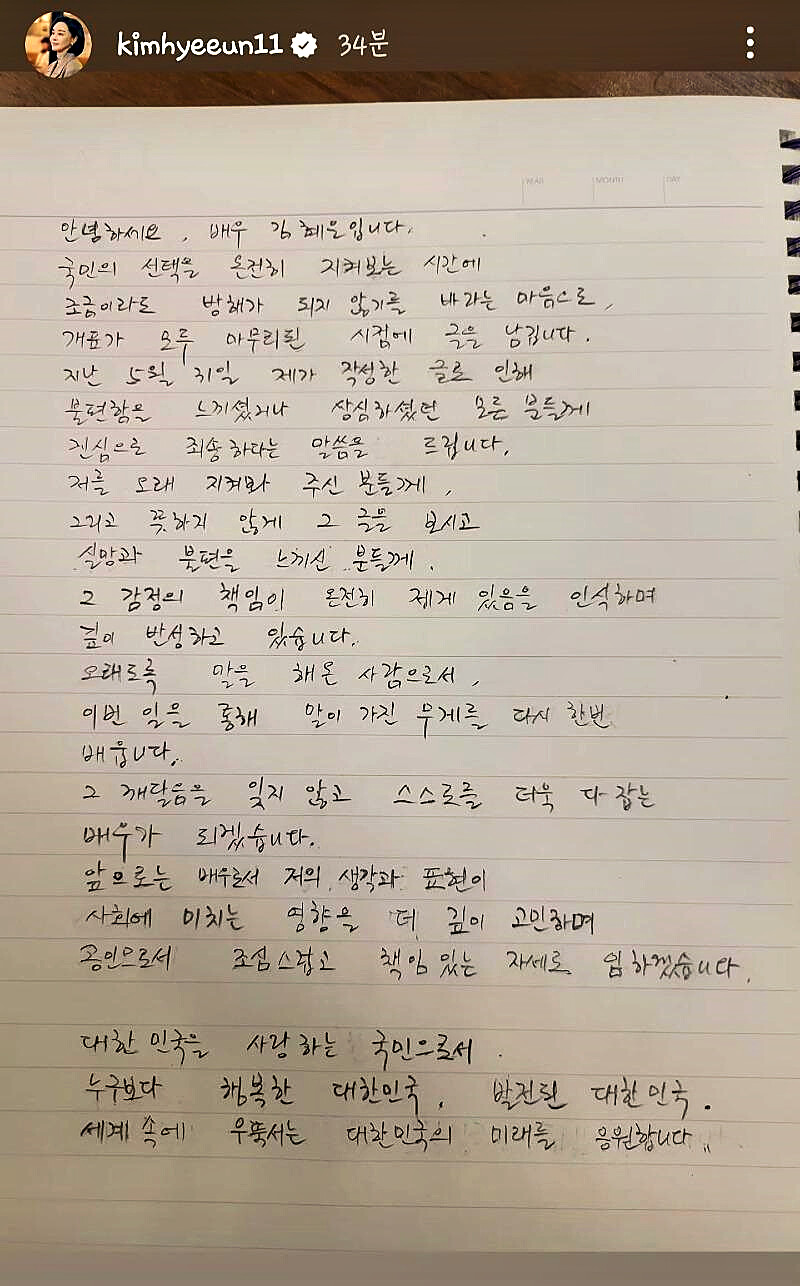 kimhyeeun11 34분
YEAR MONTH DAY
안녕하세요, 배우 김혜은입니다.
국민의 선택을 온전히 지켜보는 시간에
조금이라도 방해가 되지 않기를 바라는 마음으로,
개표가 모두 마무리된 시점에 글을 남깁니다.
지난 5월 31일 제가 작성한 글로 인해
불편함을 느끼셨거나 상심하셨던 모든 분들께
진심으로 죄송하다는 말씀을 드립니다.
저를 오래 지켜봐 주신 분들께,
그리고 뜻하지 않게 그 글을 보시고
실망과 불편을 느끼신 분들께.
그 감정의 책임이 온전히 제게 있음을 인식하며
깊이 반성하고 있습니다.
오래도록 말을 해온 사람으로서,
이번 일을 통해 말이 가진 무게를 다시 한번
배웁니다.
그 깨달음을 잊지 않고 스스로를 더욱 다잡는
배우가 되겠습니다.
앞으로는 배우로서 저의 생각과 표현이
사회에 미치는 영향을 더 깊이 고민하며
공인으로서 조심스럽고 책임있는 자세로 임하겠습니다.
대한민국을 사랑하는 국민으로서.
누구보다 행복한 대한민국, 발전된 대한민국.
세계 속에 우뚝서는 대한민국의 미래를 응원합니다..